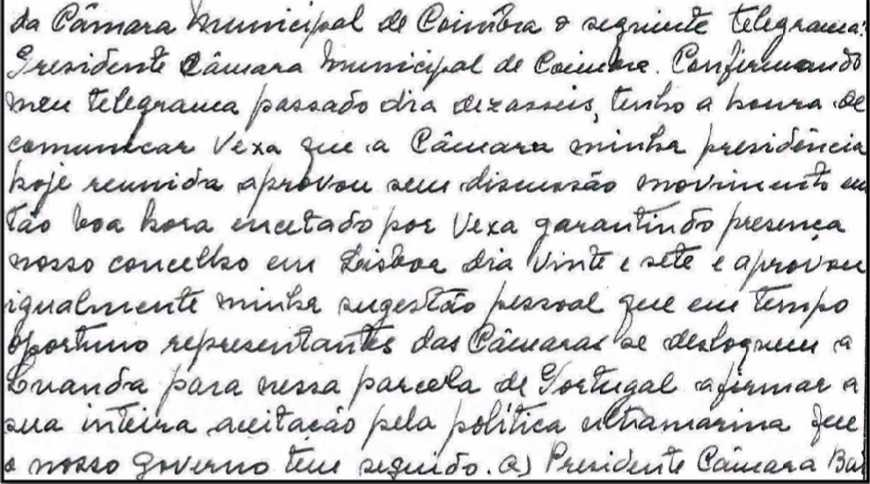 da Câmara Municipal de Coimbra o seguinte telegrama:
Presidente Câmara Municipal de Coimbra. Confirmando
meu telegrama passado dia dezasseis, tenho a honra de
comunicar Vexa que a Câmara minha presidência
hoje reunida aprovou sem discussão movimento em
tão boa hora encetado por Vexa garantindo presença
nosso concelho em Lisboa dia vinte e sete e aprovou
igualmente minha sugestão pessoal que em tempo
oportuno representantes das Câmaras se desloquem a
Luanda para nessa parcela de Portugal afirmar a
sua inteira aceitação pela política ultramarina que
o nosso Governo tem seguido. a) Presidente Câmara Bai